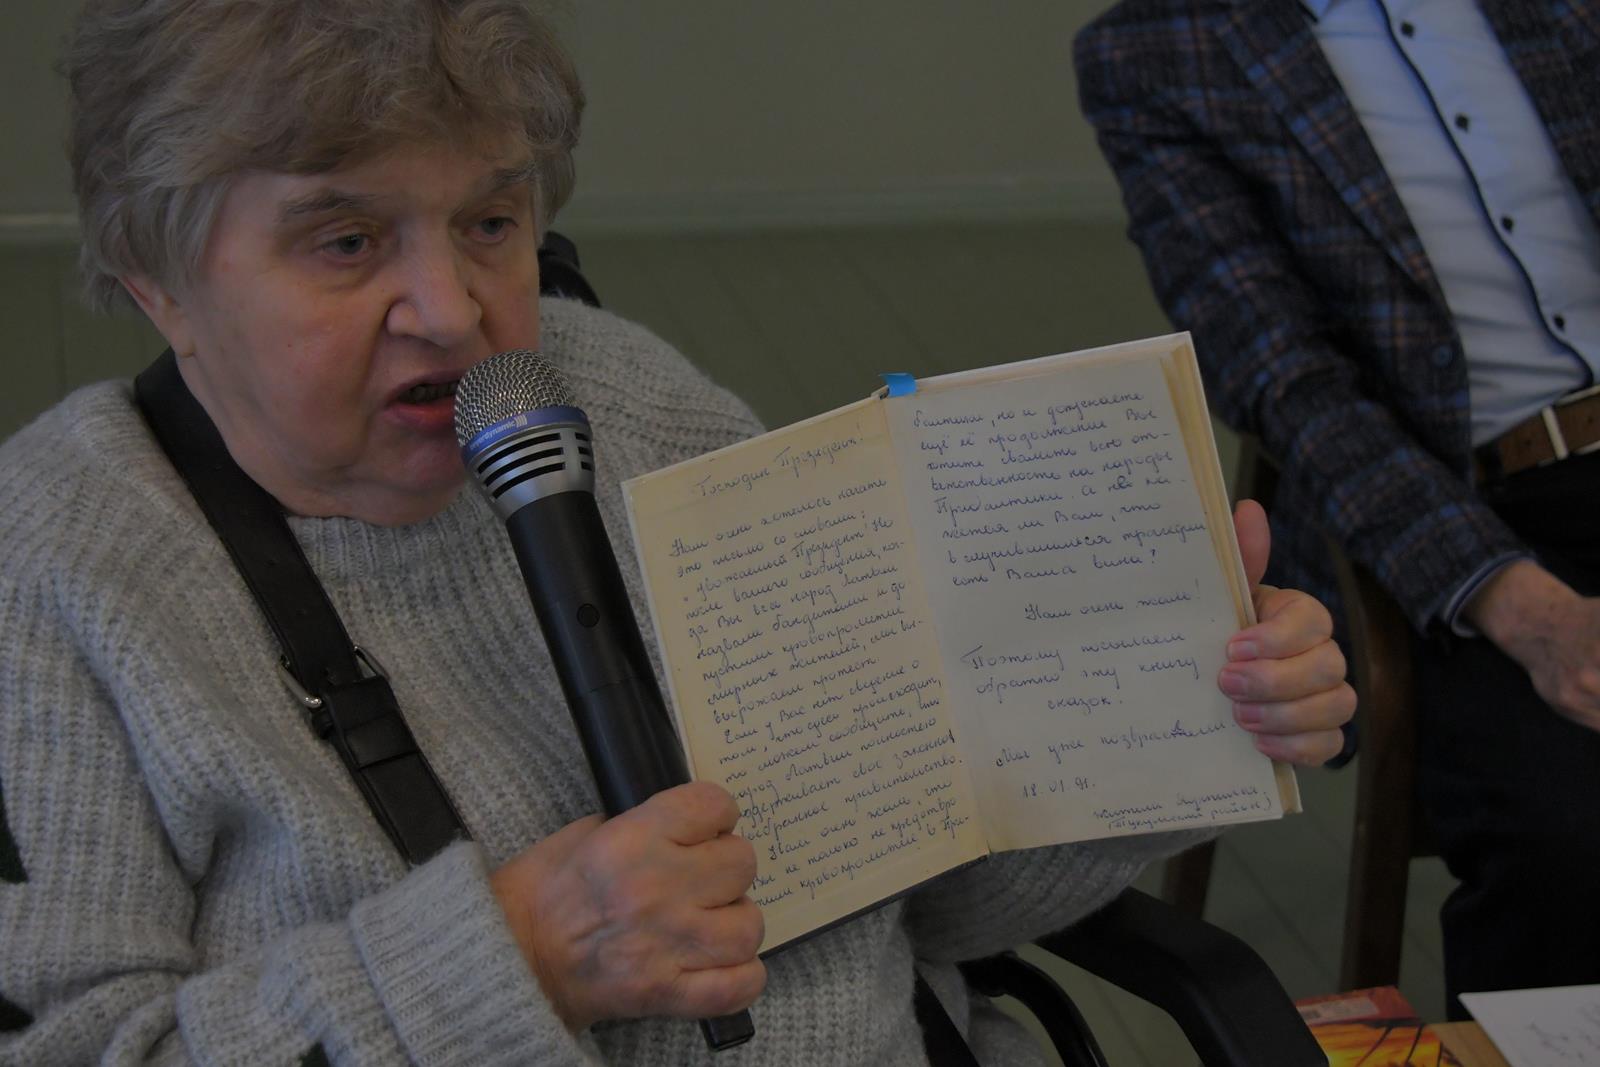 Господин Президент!
Нам очень хотелось начать
это письмо со словами:
"Уважаемый Президент! Но
после вашего сообщения, ког-
да Вы весь народ Латвии
назвали бандитами и до-
пустили кровопролитие
мирных жителей, мы вы-
выражаем протест.
Если у Вас нет сведение о
том, что здесь происходит,
то можем сообщить, что
народ Латвии полностью
поддерживает свое законно
избранное правительство.
Нам очень жаль, что
Вы не только не предотвра-
тили кровопролитие в При-
балтики, но и допускаете
ещё её продолжение Вы
хотите свалить всю от-
ветственность на народы
Прибалтики. А не ка-
жется ли Вам, что
в случившимся трагедии
есть Ваша вина?
Нам очень жаль!
Поэтому посылаем
обратно эту книгу
сказок.
Мы уже позврастели
18.01.91.
жители
(Тукумский район)
beyerdynamic